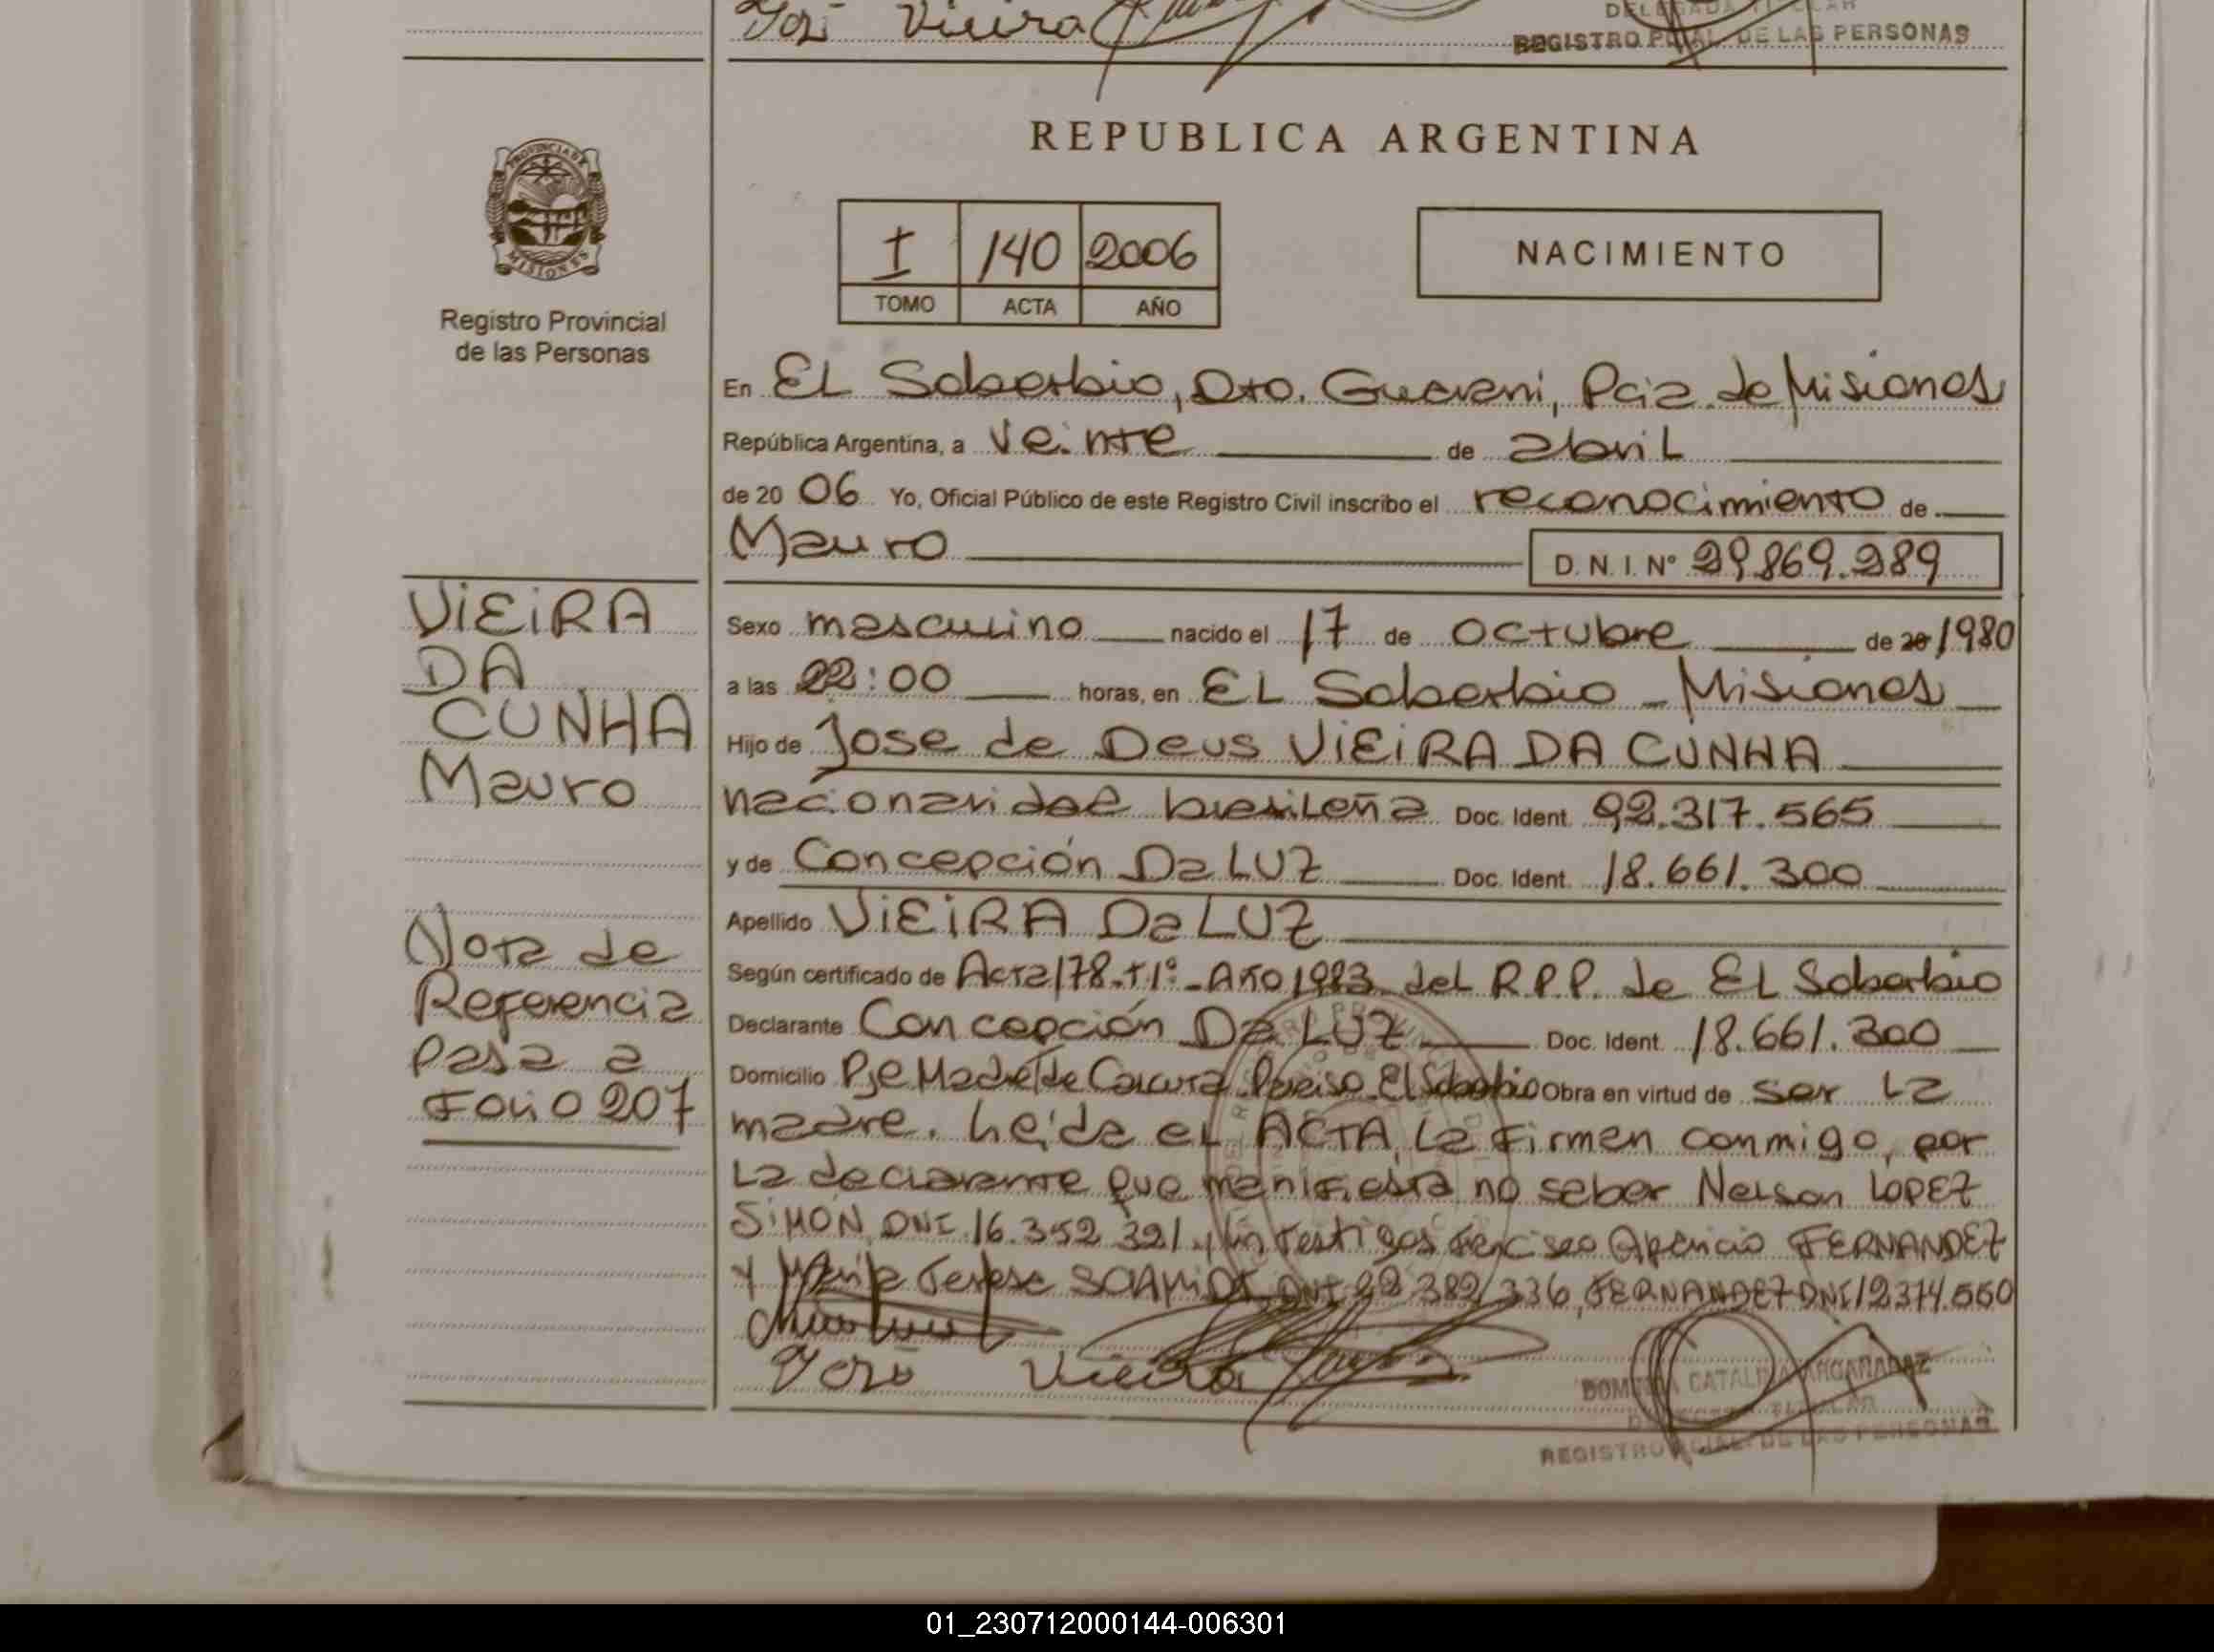 José Vieira
REGISTRO PCIAL. DE LAS PERSONAS
PROVINCIA DE
MISIONES
Registro Provincial
de las Personas
REPUBLICA ARGENTINA
I 140 2006
TOMO ACTA AÑO
NACIMIENTO
En EL Soberbio, Dto. Guarani, Pcia. de Misiones
República Argentina, a Veinte de abril
de 20 06 Yo, Oficial Público de este Registro Civil inscribo el reconocimiento de
Mauro D.N.I. Nº 29.869.289
VIEIRA
DA
CUNHA
Mauro
Nota de
Referencia
Pasa a
Folio 207
Sexo masculino nacido el 17 de octubre de 20 1980
a las 22:00 horas, en EL Soberbio - Misiones
Hijo de Jose de Deus VIEIRA DA CUNHA
nacionalidad brasileña Doc. Ident. 92.317.565
y de Concepción Da LUZ Doc. Ident. 18.661.300
Apellido VIEIRA Da LUZ
Según certificado de Acta 178.T.1º - Año 1983 del R.P.P. de EL Soberbio
Declarante Concepción Da LUZ Doc. Ident. 18.661.300
Domicilio Pje Madre de El Soberbio Obra en virtud de ser La
madre. Leída el ACTA, La Firman conmigo, por
La declarante que manifiesta no saber Nelson LOPEZ
SIMON, DNI. 16.352.321 y Testigos Francisco Aparicio FERNANDEZ
y Maria Teresa DNI 22.382.336, FERNANDEZ DNI 12.374.550
José Vieira
CATALINA
REGISTRO PCIAL. DE LAS PERSONAS
01_230712000144-006301